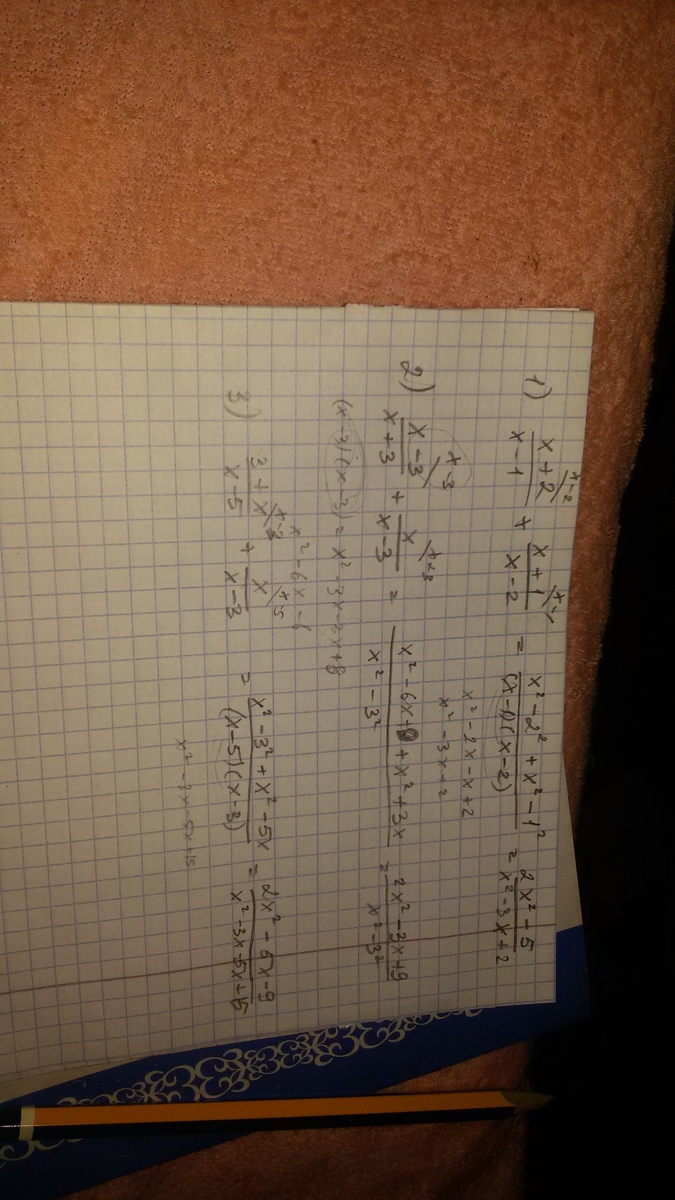 1) x+2/x-1 (x-2) + x+1/x-2 (x-1) = x²-2²+x²-1²/(x-1)(x-2) = 2x²-5/x²-3x+2
x²-2x-x+2
x²-3x+2
2) x-3/x+3 (x-3) + x/x-3 (x+3) = x²-6x+9+x²+3x/x²-3² = 2x²-3x+9/x²-3²
(x-3)(x-3) = x²-3x-3x+9
x²-6x-6
3) 3+x/x-5 (x-3) + x/x-3 (x-5) = x²-3²+x²-5x/(x-5)(x-3) = 2x²-5x-9/x²-3x-5x+15
x²-3x-5x+15